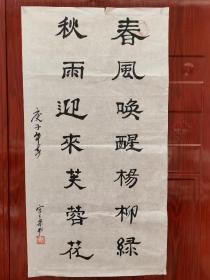 春風唤醒楊柳緑
秋雨迎來芙蓉花
庚子年